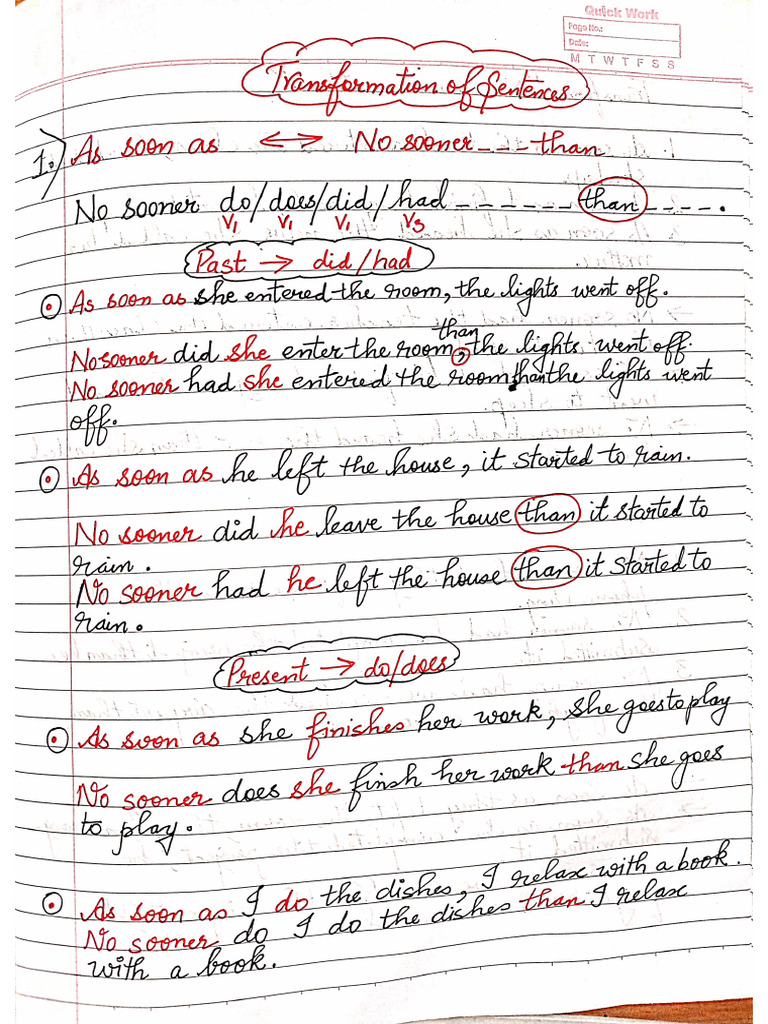 Quick Work
Page No.:
Date:
M T W T F S S
Transformation of Sentences
1.) As soon as ↔ No sooner _ _ _ than
No sooner do/does/did/had _ _ _ _ _ _ than _ _ _ _ .
V₁ V₁ V₁ V₃
Past → did/had
As soon as she entered the room, the lights went off.
than
No sooner did she enter the room, the lights went off.
No sooner had she entered the room than the lights went
off.
As soon as he left the house, it started to rain.
No sooner did he leave the house than it started to
rain.
No sooner had he left the house than it started to
rain.
Present → do/does
As soon as she finishes her work, she goes to play
No sooner does she finish her work than she goes
to play.
As soon as I do the dishes, I relax with a book.
No sooner do I do the dishes than I relax
with a book.